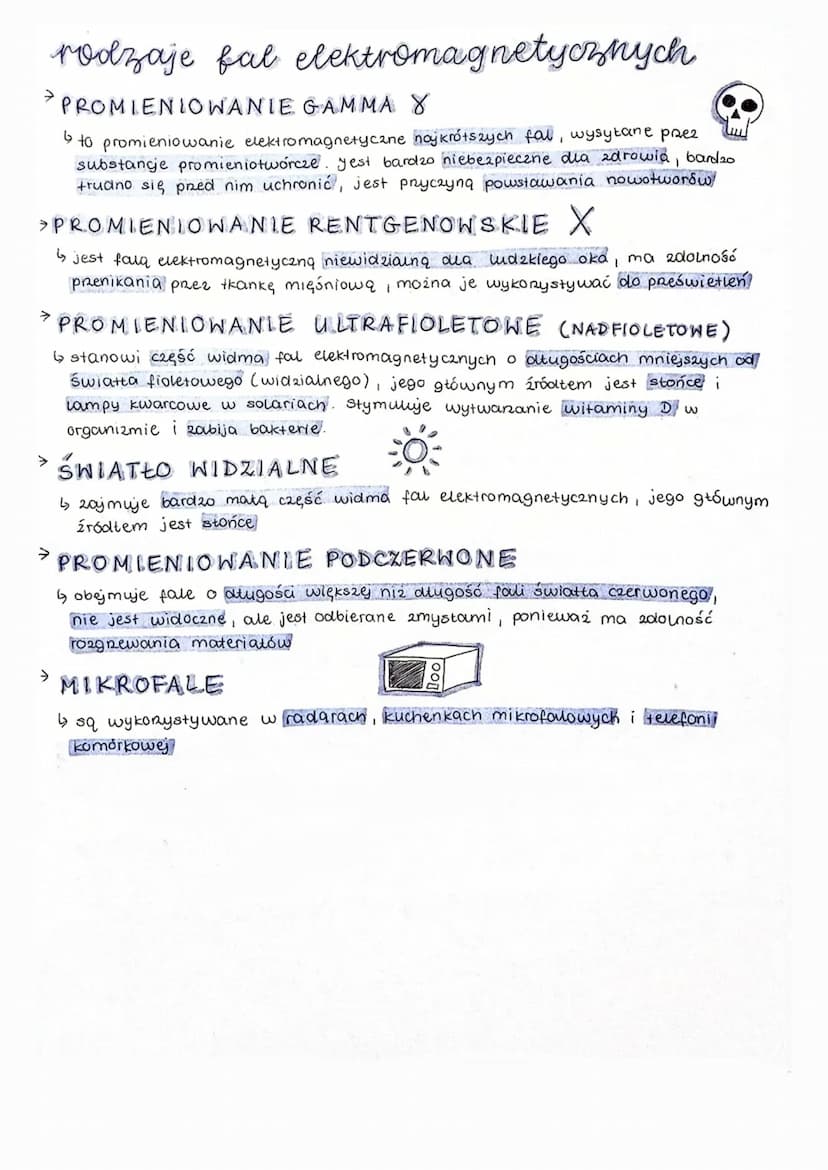 rodzaje fal elektromagnetycznych
→ PROMIENIOWANIE GAMMA γ
↳ to promieniowanie elektromagnetyczne najkrótszych fal, wysyłane przez
substancje promieniotwórcze. Jest bardzo niebezpieczne dla zdrowia, bardzo
trudno się przed nim uchronić, jest przyczyną powstawania nowotworów
→ PROMIENIOWANIE RENTGENOWSKIE X
↳ jest falą elektromagnetyczną niewidzialną dla ludzkiego oka, ma zdolność
przenikania przez tkankę mięśniową, można je wykorzystywać do prześwietleń
→ PROMIENIOWANIE ULTRAFIOLETOWE (NADFIOLETOWE)
↳ stanowi część widma fal elektromagnetycznych o długościach mniejszych od
światła fioletowego (widzialnego), jego głównym źródłem jest słońce i
lampy kwarcowe w solariach. Stymuluje wytwarzanie witaminy D w
organizmie i zabija bakterie.
→ ŚWIATŁO WIDZIALNE
↳ zajmuje bardzo małą część widma fal elektromagnetycznych, jego głównym
źródłem jest słońce
→ PROMIENIOWANIE PODCZERWONE
↳ obejmuje fale o długości większej niż długość fali światła czerwonego,
nie jest widoczne, ale jest odbierane zmysłami, ponieważ ma zdolność
rozgrzewania materiałów
→ MIKROFALE
↳ są wykorzystywane w radarach, kuchenkach mikrofalowych i telefonii
komórkowej